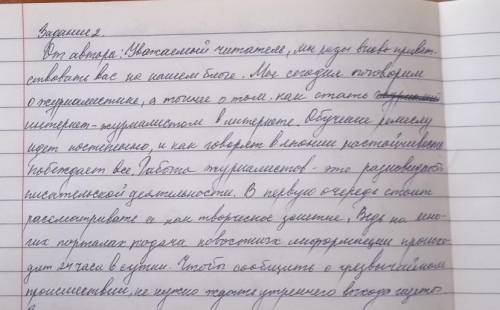 Задание 2.
От автора: Уважаемый читатель, мы рады вновь привет-
ствовать вас на нашем блоге. Мы сегодня поговорим
о журналистике, а точнее о том, как стать
интернет-журналистом в интернете. Обучение ремеслу
идет постепенно, и как говорят в японии настойчивость
побеждает все. Работа журналистов - это разновидность
писательской деятельности. В первую очередь стоит
рассматривать а как творческое занятие. Ведь на мно-
гих порталах подача новостных информации происхо-
дит 24 часа в сутки. Чтобы сообщить о чрезвычайном
происшествии, не нужно ждать утреннего выхода газеты